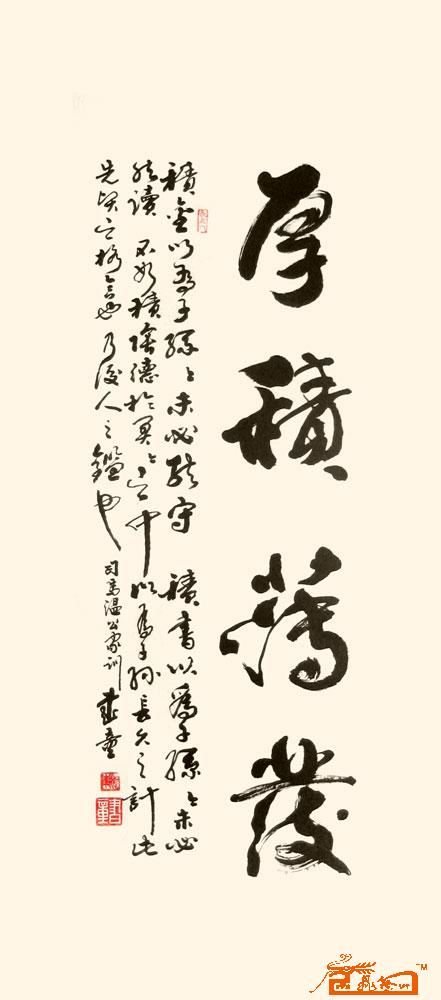 厚積薄發
積金以為子孫子孫未必能守積書以為子孫子孫未必
能讀不如積陰德於冥冥之中以為子孫長久之計此
先賢之格言也乃後人之鑑也司馬溫公家訓